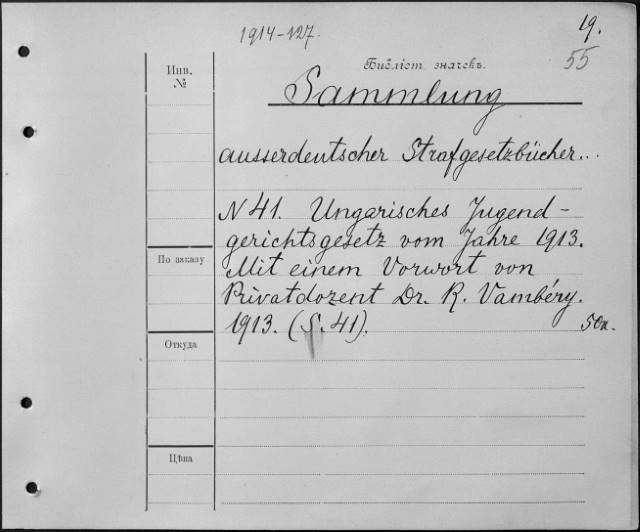 1914-127.
19.
55
Инв. №
Библіот. значекъ.
Sammlung
ausserdeutscher Strafgesetzbücher...
N 41. Ungarisches Jugend-
gerichtsgesetz vom Jahre 1913.
Mit einem Vorwort von
Privatdozent Dr. R. Vambéry.
1913. (S. 41).
50к.
По заказу
Откуда
Цѣна